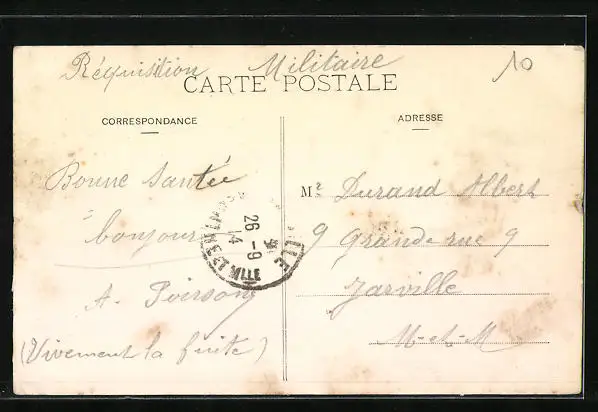 Réquisition Militaire
10
CARTE POSTALE
CORRESPONDANCE
ADRESSE
Bonne Santée
bonjour
A. Poirson
(Vivement la fuite)
26 - 9
14
Mr Durand Albert
9 Grande rue 9
Jarville
M-et-M